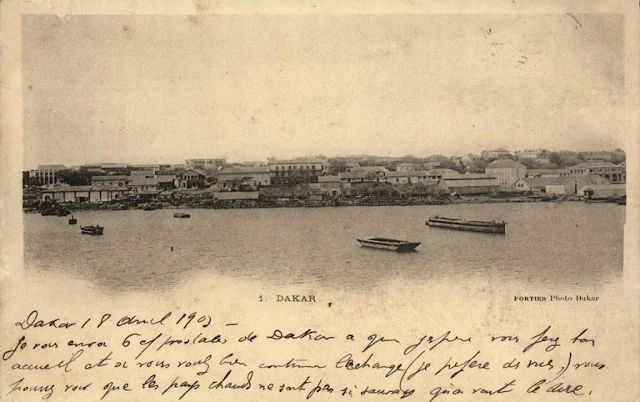 1. DAKAR
FORTIER Photo Dakar
Dakar 18 Avril 190
Je vous envoi 6 c/ postales de Dakar a qui j'espere vous ferez bon
accueil et si vous voulez bien continuer l'echange (je prefere des vues,) vous
pourrez voir que les pays chauds ne sont pas si sauvages qu'on veut le dire.